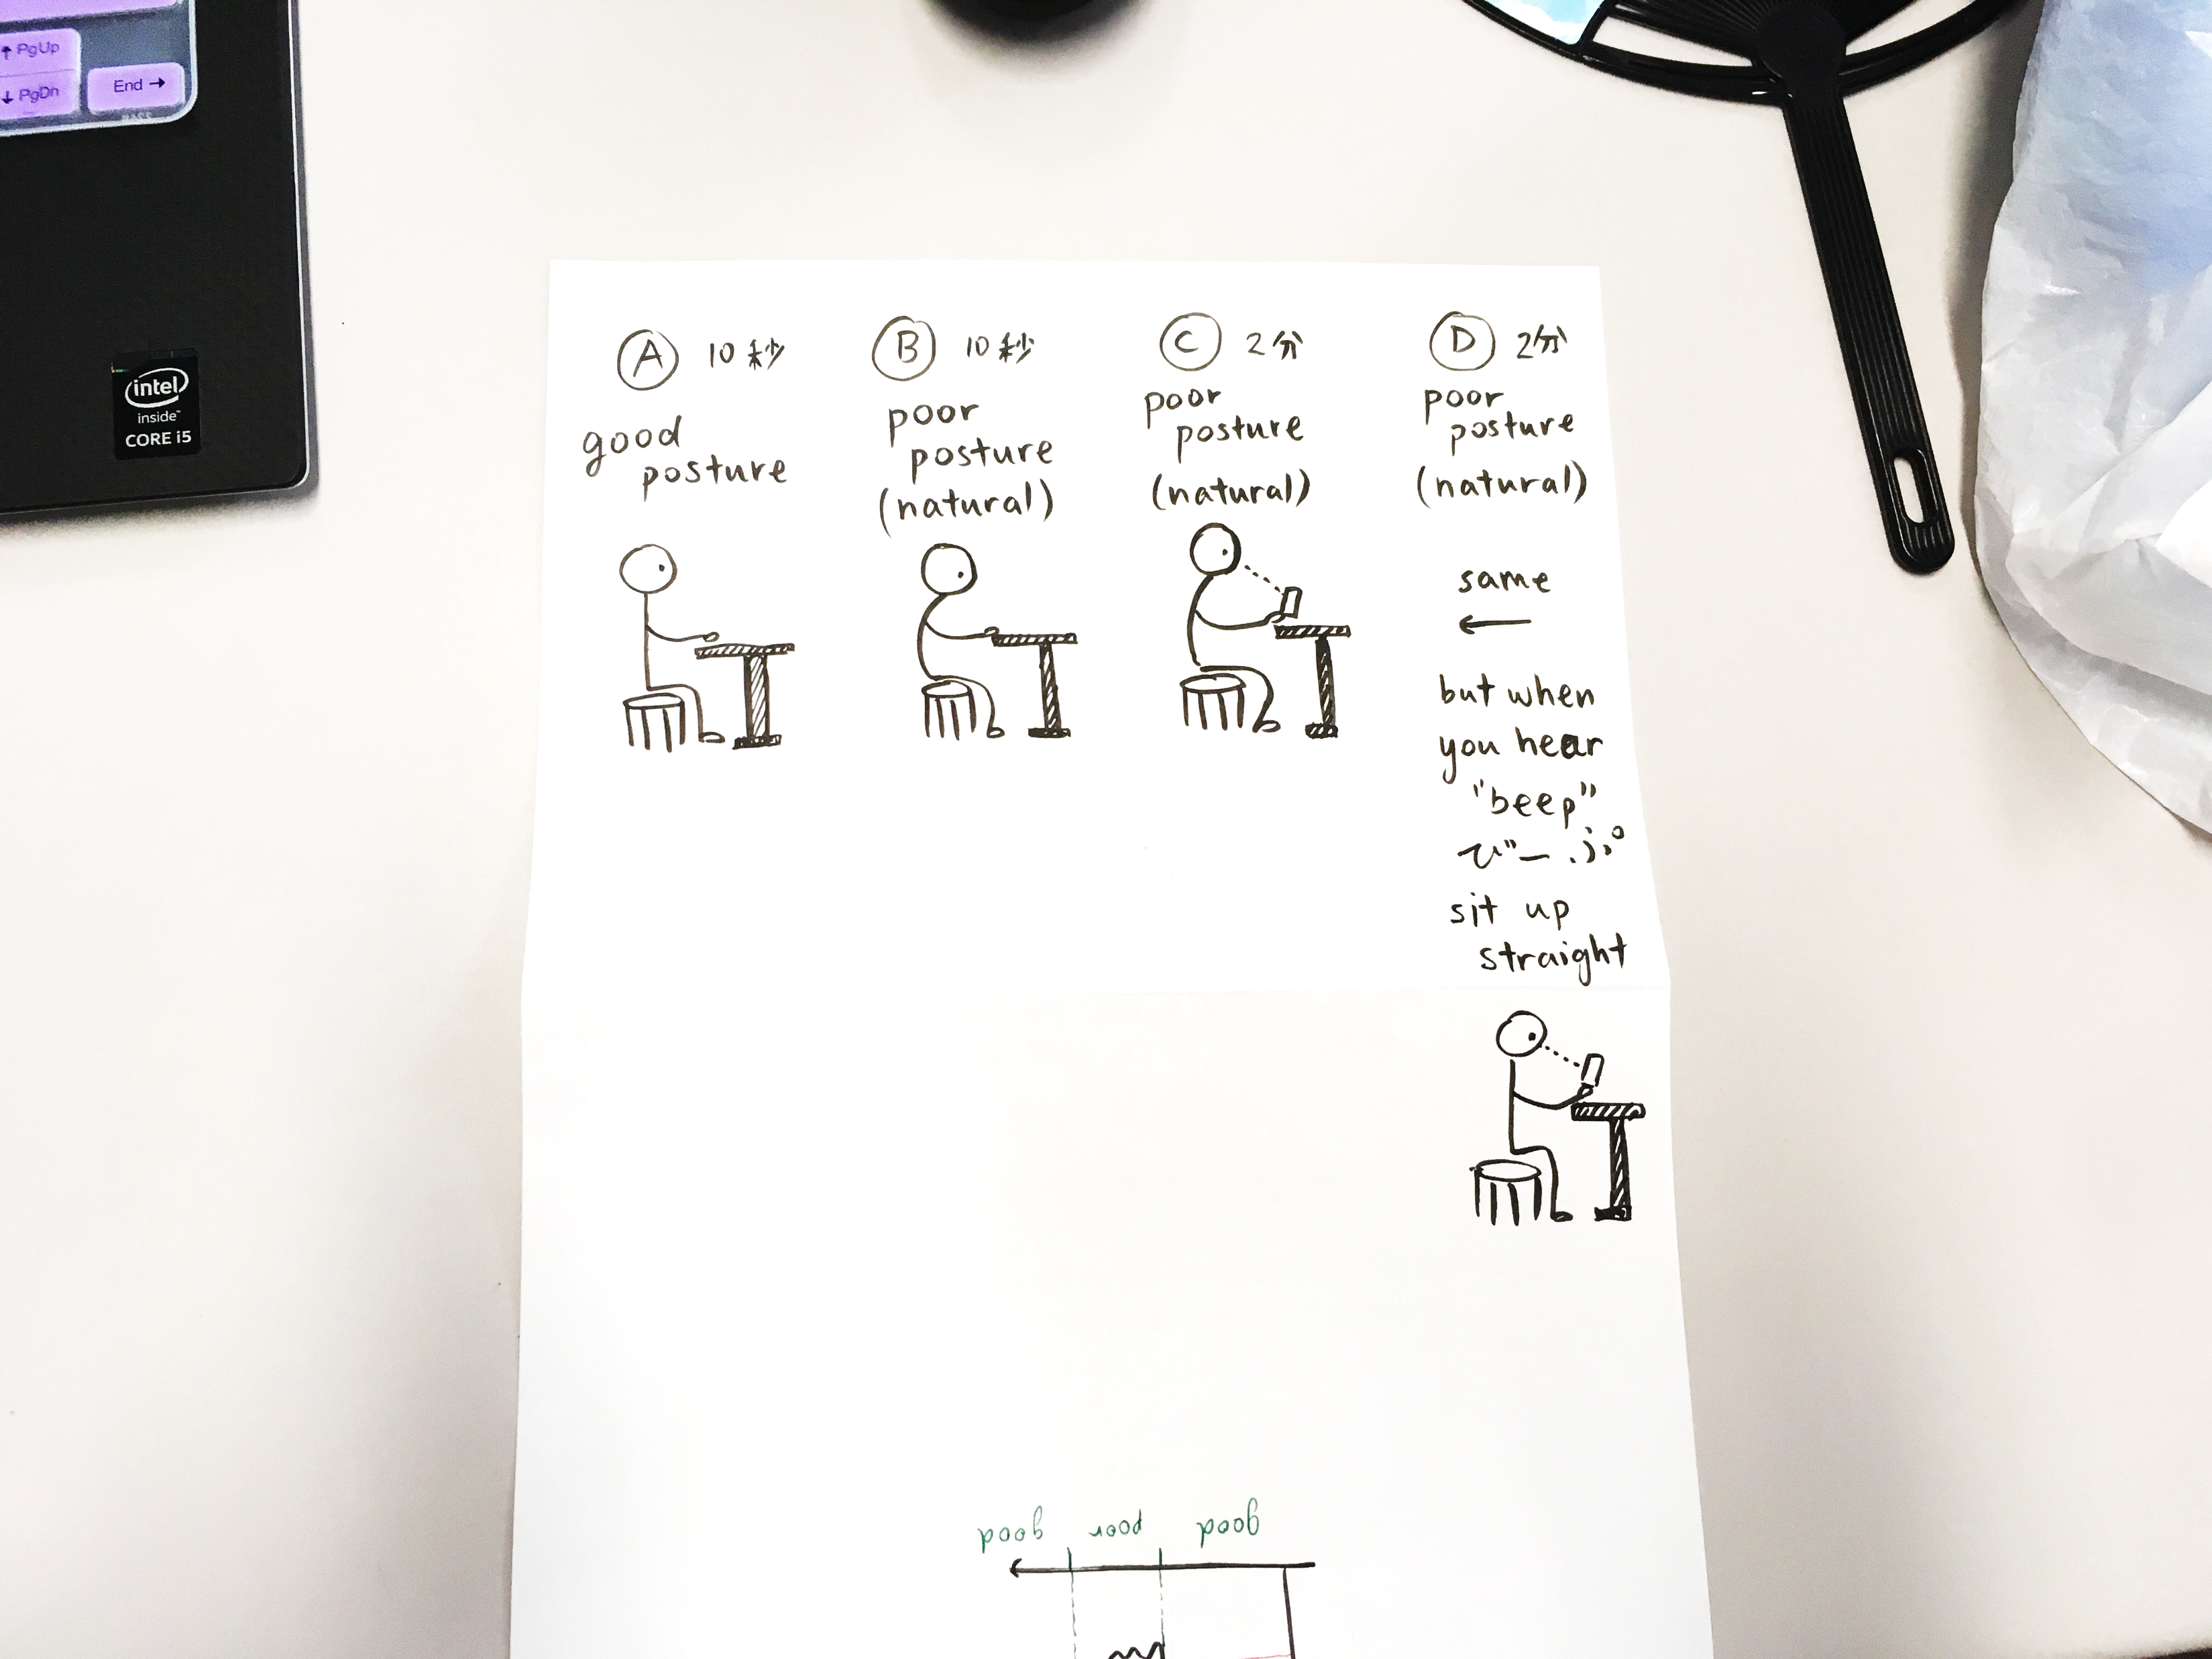 ↑ PgUp
↓ PgDn
End →
intel
inside™
CORE i5
A 10秒
good
posture
B 10秒
poor
posture
(natural)
C 2分
poor
posture
(natural)
D 2分
poor
posture
(natural)
same
←
but when
you hear
"beep"
びーぷ
sit up
straight
good
poor
good